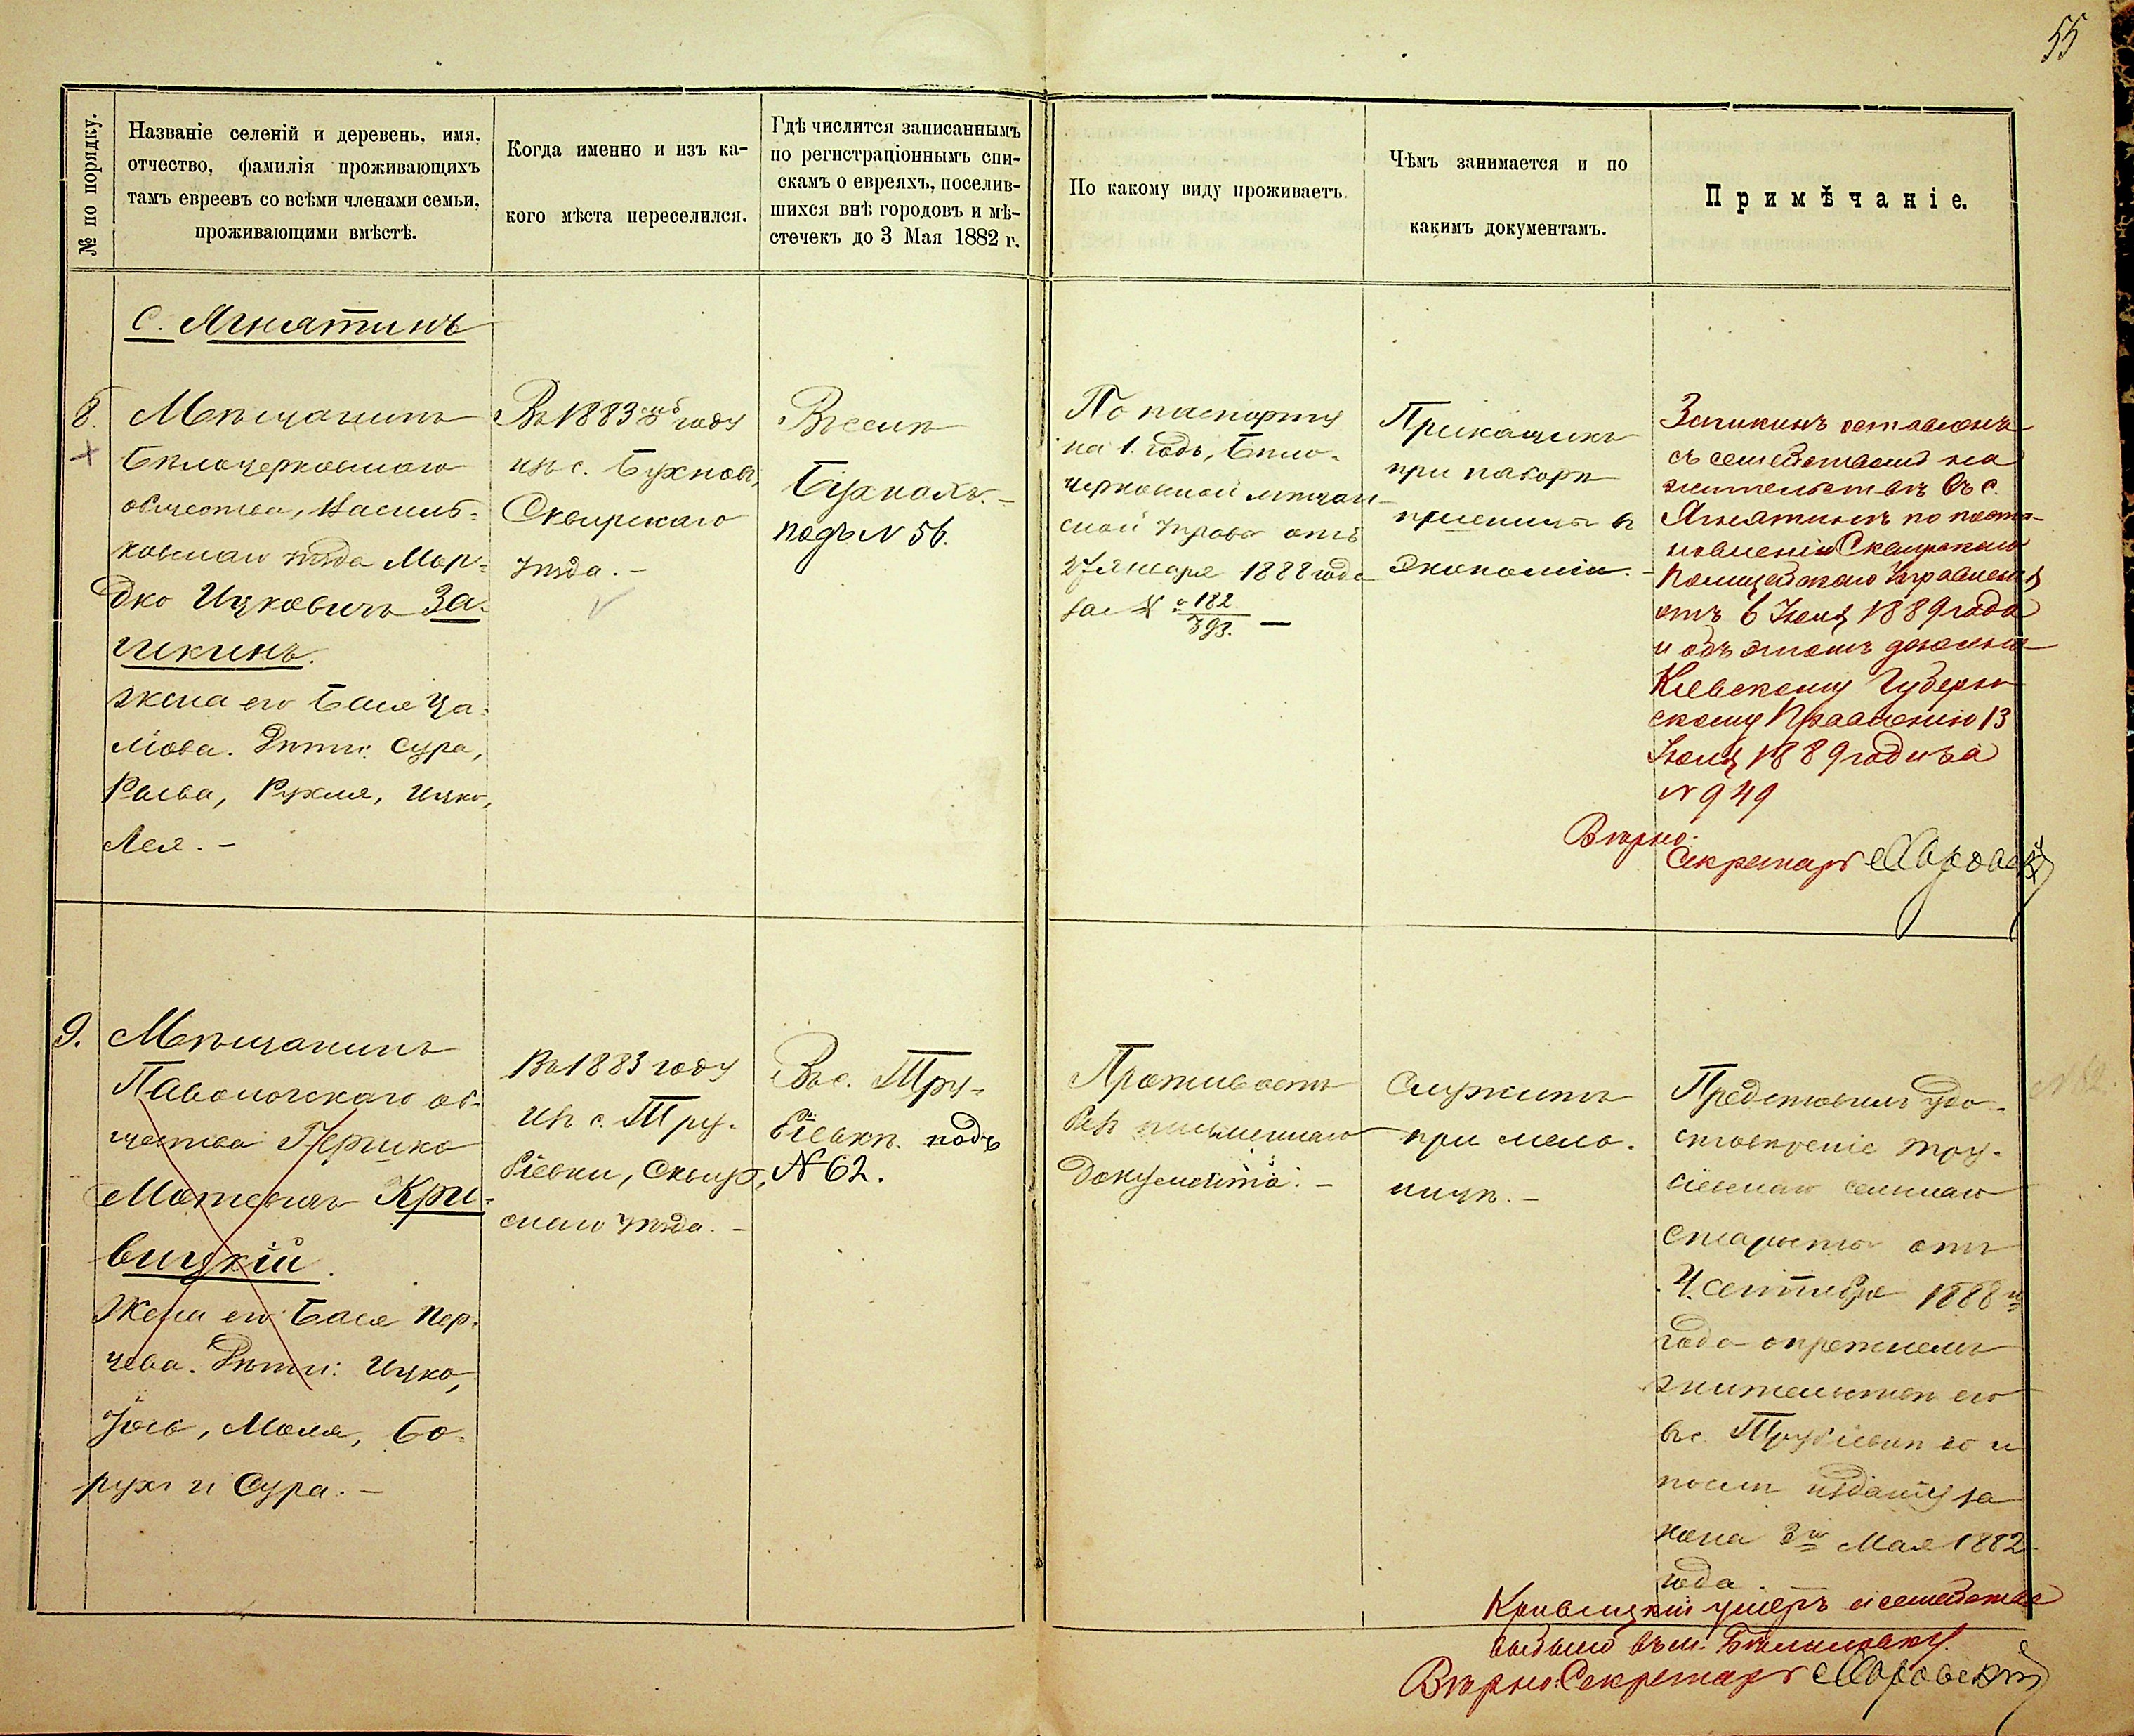 55
№ по порядку.
Названіе селеній и деревень, имя,
отчество, фамилія проживающихъ
тамъ евреевъ со всѣми членами семьи,
проживающими вмѣстѣ.
Когда именно и изъ ка-
кого мѣста переселился.
Гдѣ числится записаннымъ
по регистраціоннымъ спи-
скамъ о евреяхъ, поселив-
шихся внѣ городовъ и мѣ-
стечекъ до 3 Мая 1882 г.
По какому виду проживаетъ.
Чѣмъ занимается и по
какимъ документамъ.
Примѣчаніе.
с. Ягнятинъ
8.
Мѣщанинъ
Бѣлоцерковскаго
общества, Василь-
ковскаго уѣзда Мор-
дко Ицковичъ За-
пикинъ.
жена его Бася
Дѣти: Сура,
Рухля, Ицко,
Лея. -
Въ 1883 году
изъ с. Бухновъ,
Сквирскаго
уѣзда. -
Въ селѣ
подъ N 56.
По паспорту
на 1. годъ, Бѣло-
церковской мѣщан-
ской Управы отъ
27 Января 1888 года
за № 182/393. —
Прикащикъ
при наборѣ
пшеницы в
Экономіи. -
Запикинъ оставленъ
съ семействомъ на
жительствѣ въ с.
Ягнятинѣ по поста-
новленію Сквирскаго
Полицейскаго Управленія
отъ 6 Іюля 1889 года
и объ этомъ донесено
Кіевскому Губерн
скому Правленію 13
Іюля 1889 года за
N 949
Вѣрно:
Секретарь
9.
Мѣщанинъ
Паволочскаго об-
щества Гершко
Мотевичъ Кри-
вицкій.
Жена его Бася Пер-
цева. Дѣти: Ицко,
Іось, Моля, Бо-
рухъ и Сура. -
Въ 1883 году
изъ с. Тру-
біевки, Сквир-
скаго уѣзда. -
Въ с. Тру-
біевкѣ подъ
N 62.
Проживаетъ
безъ письменнаго
документа. -
Служитъ
при мель-
ницѣ. -
Представилъ удо-
стовѣреніе Тру-
біевскаго сельскаго
Старосты отъ
4 Сентября 1888 го
года о прежнемъ
жительствѣ его
въ с. Трубіевкѣ до и
послѣ изданія за
кона 3го Мая 1882
года. —
N 62.
Кривицкій умеръ и семейство
выбыло въ м. Бѣлиловку.
Вѣрно: Секретарь